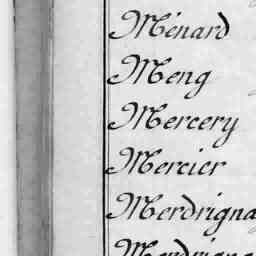 Ménard
Meng
Mercery
Mercier
Merdrigna